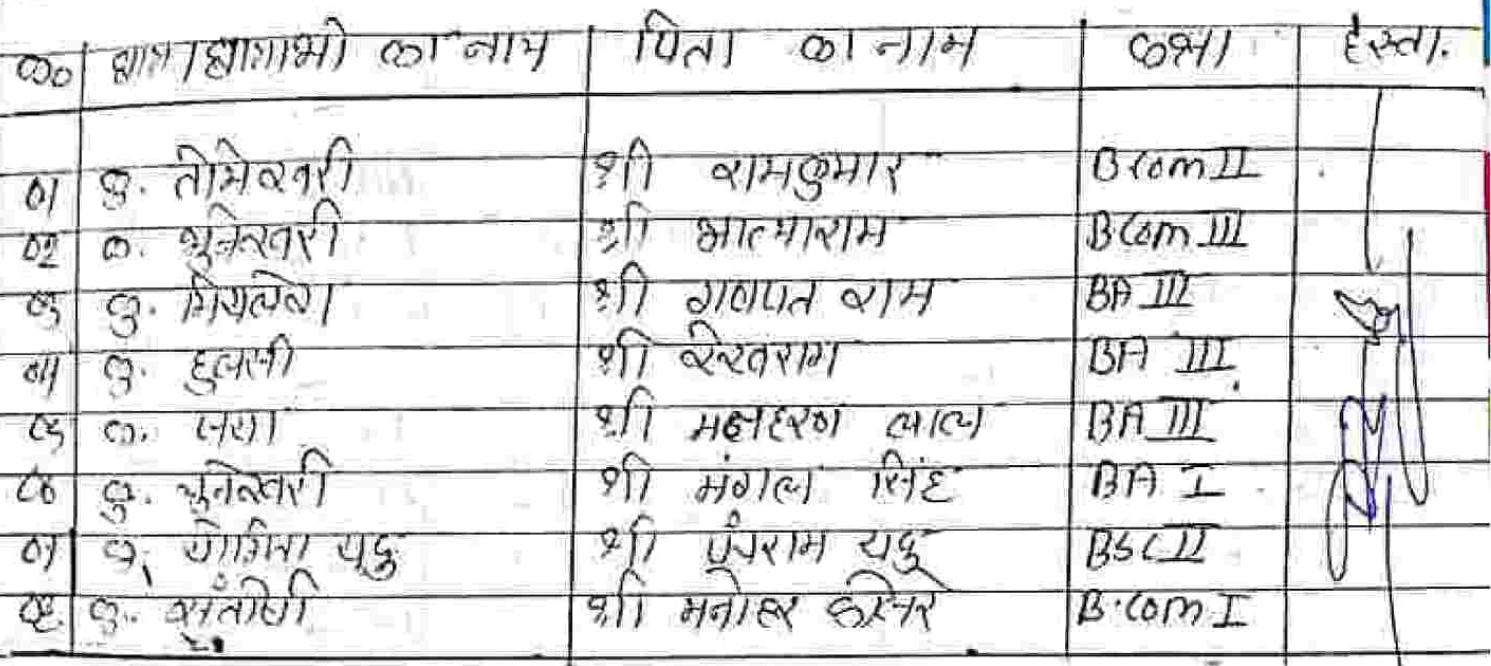 क्र० छात्र/छात्राओं का नाम पिता का नाम कक्षा हस्ता.
01 कु. तोमेश्वरी श्री रामकुमार B com II
02 कु. भुनेश्वरी श्री आत्माराम B Com III
03 कु. श्री गणपत राम BA III
04 कु. हुलसी श्री रेखराम BA III
05 कु. श्री मनहरण लाल BA III
06 कु. भुनेश्वरी श्री मंगल सिंह BA I
07 कु. योगिता यदु श्री पंचराम यदु BSC II
08 कु. संतोषी श्री मनोहर B.com I